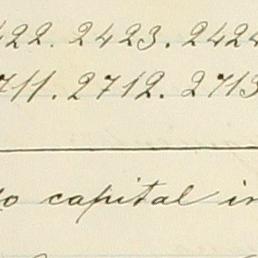 422. 2423. 2424
711. 2712. 2713
to capital in